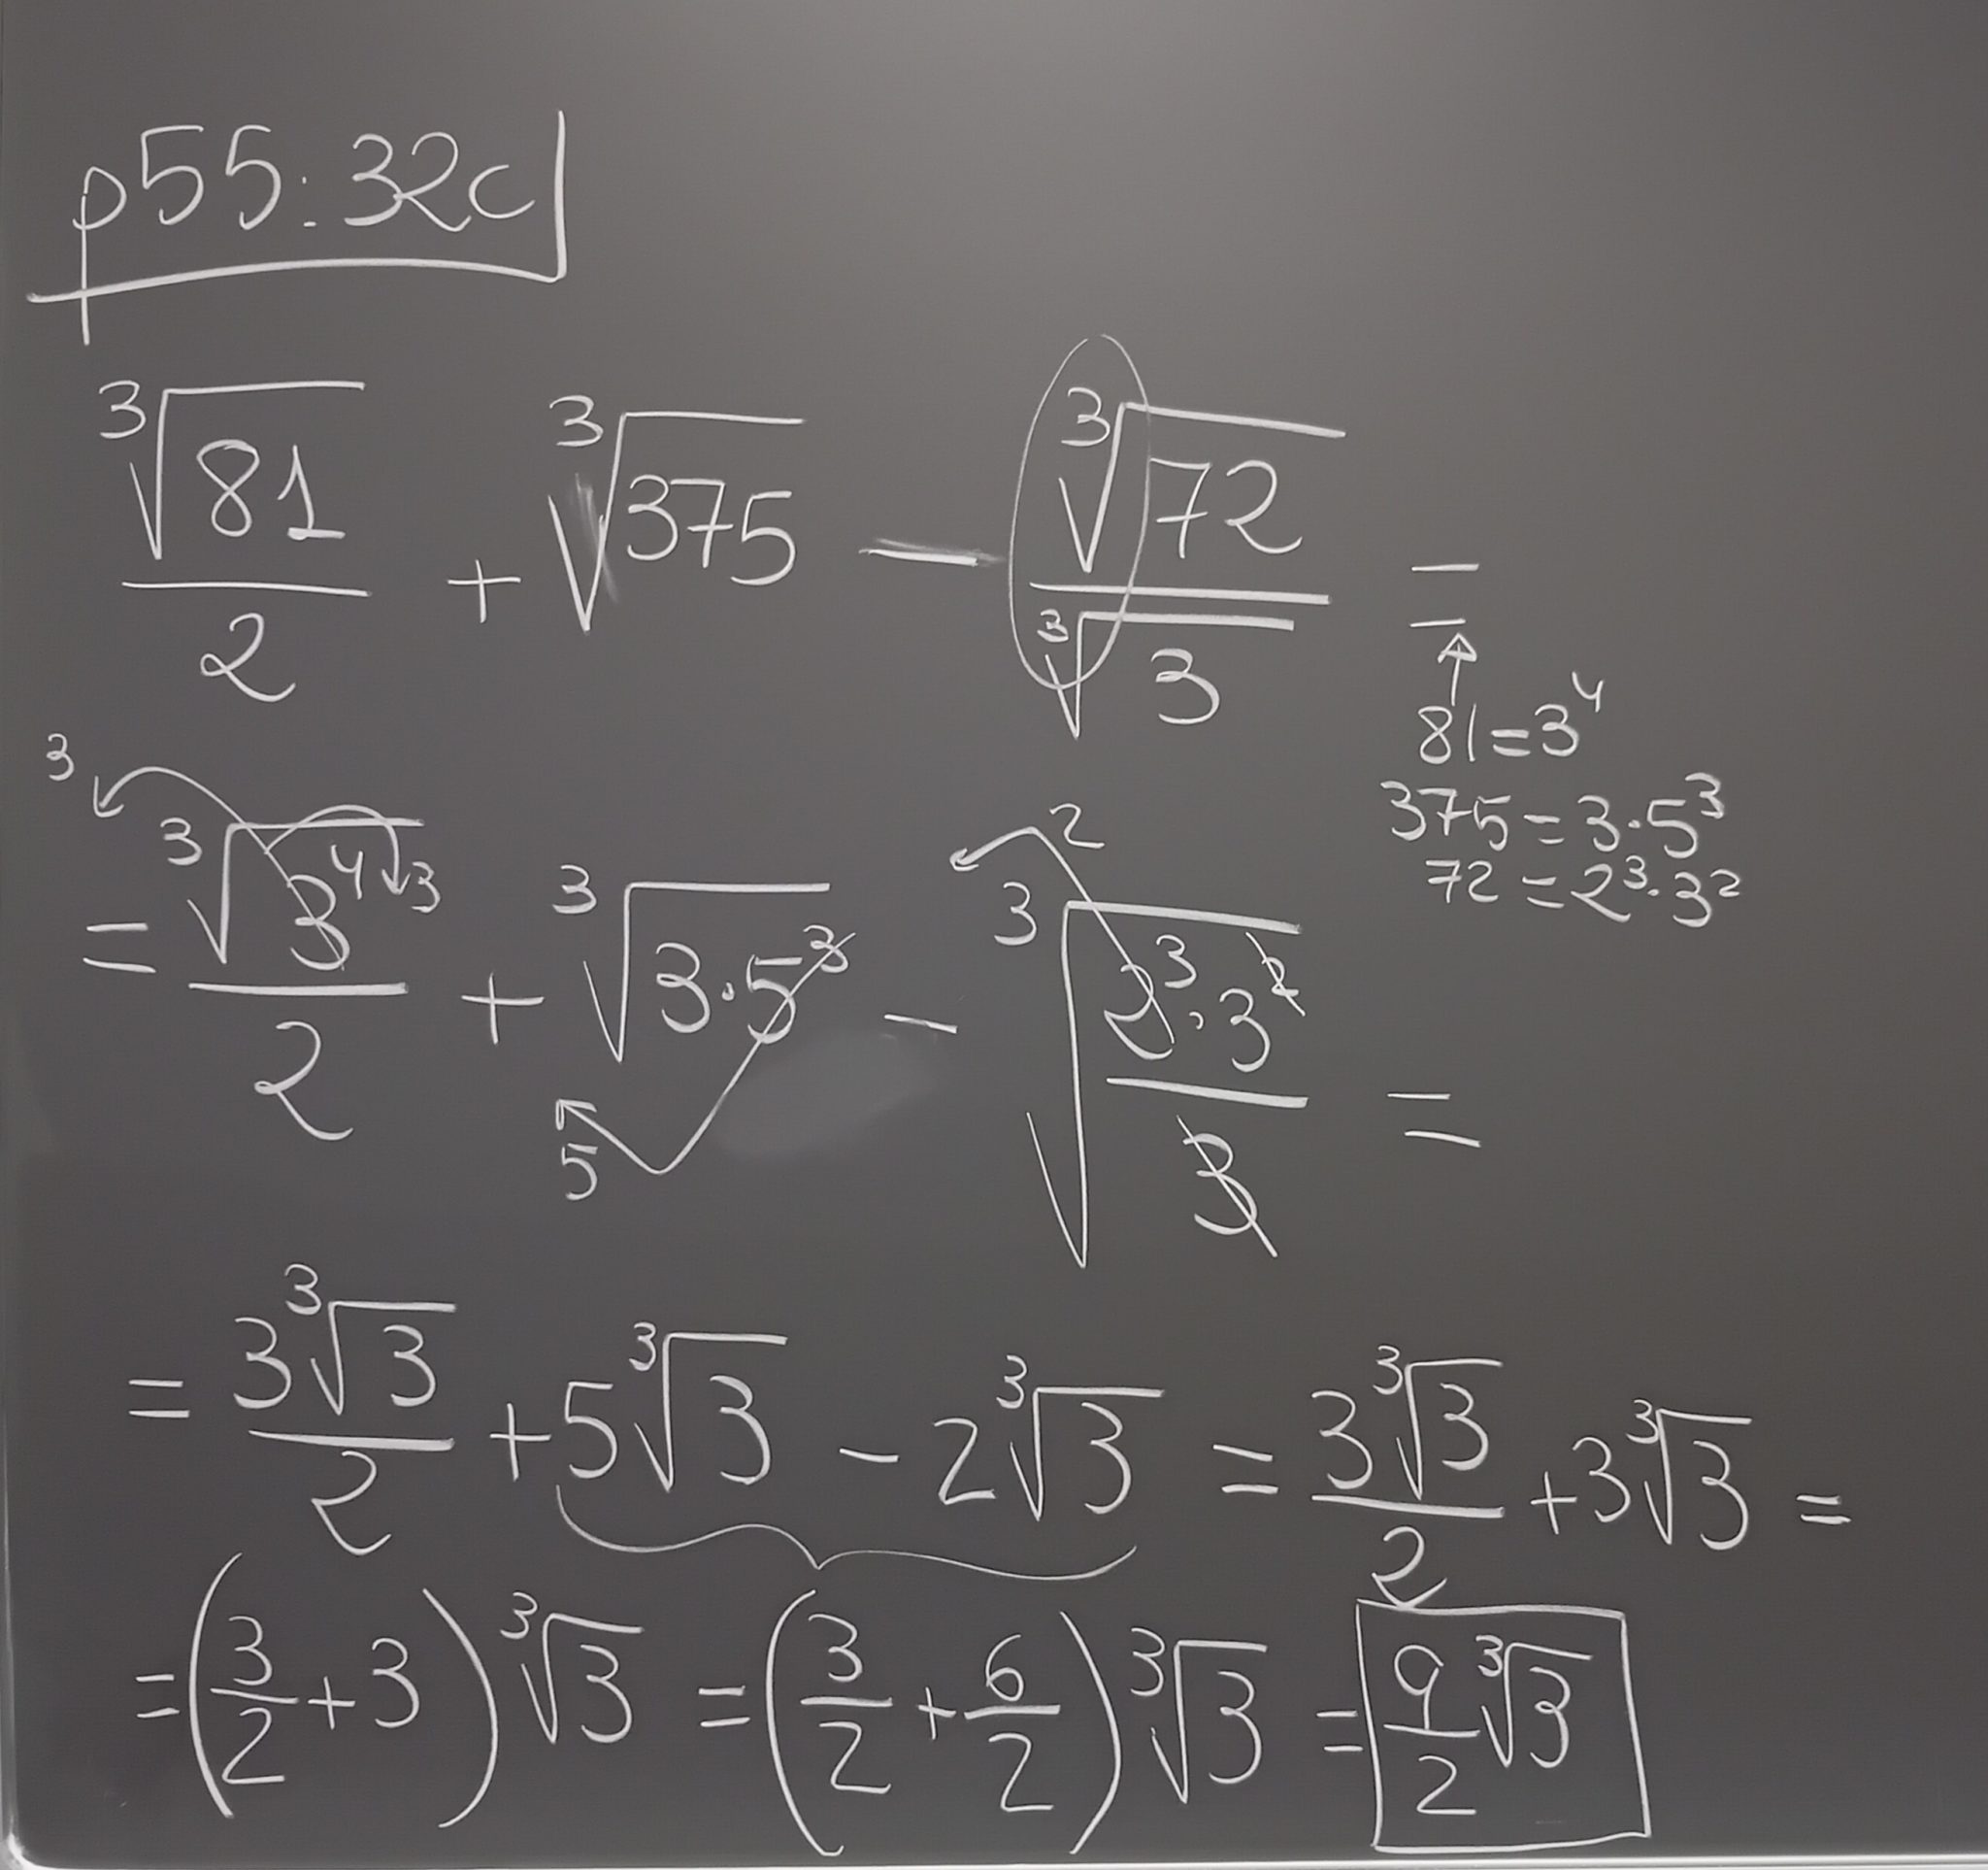 p55:32c
∛81/2 + ∛375 − ∛72/∛3 =
81=3⁴
375=3·5³
72=2³·3²
3 2
= ∛3⁴/2 3 + ∛(3·5³) − ∛(2³·3²/3) =
5
= 3∛3/2 + 5∛3 − 2∛3 = 3∛3/2 + 3∛3 =
= (3/2 + 3) ∛3 = (3/2 + 6/2) ∛3 = 9/2 ∛3